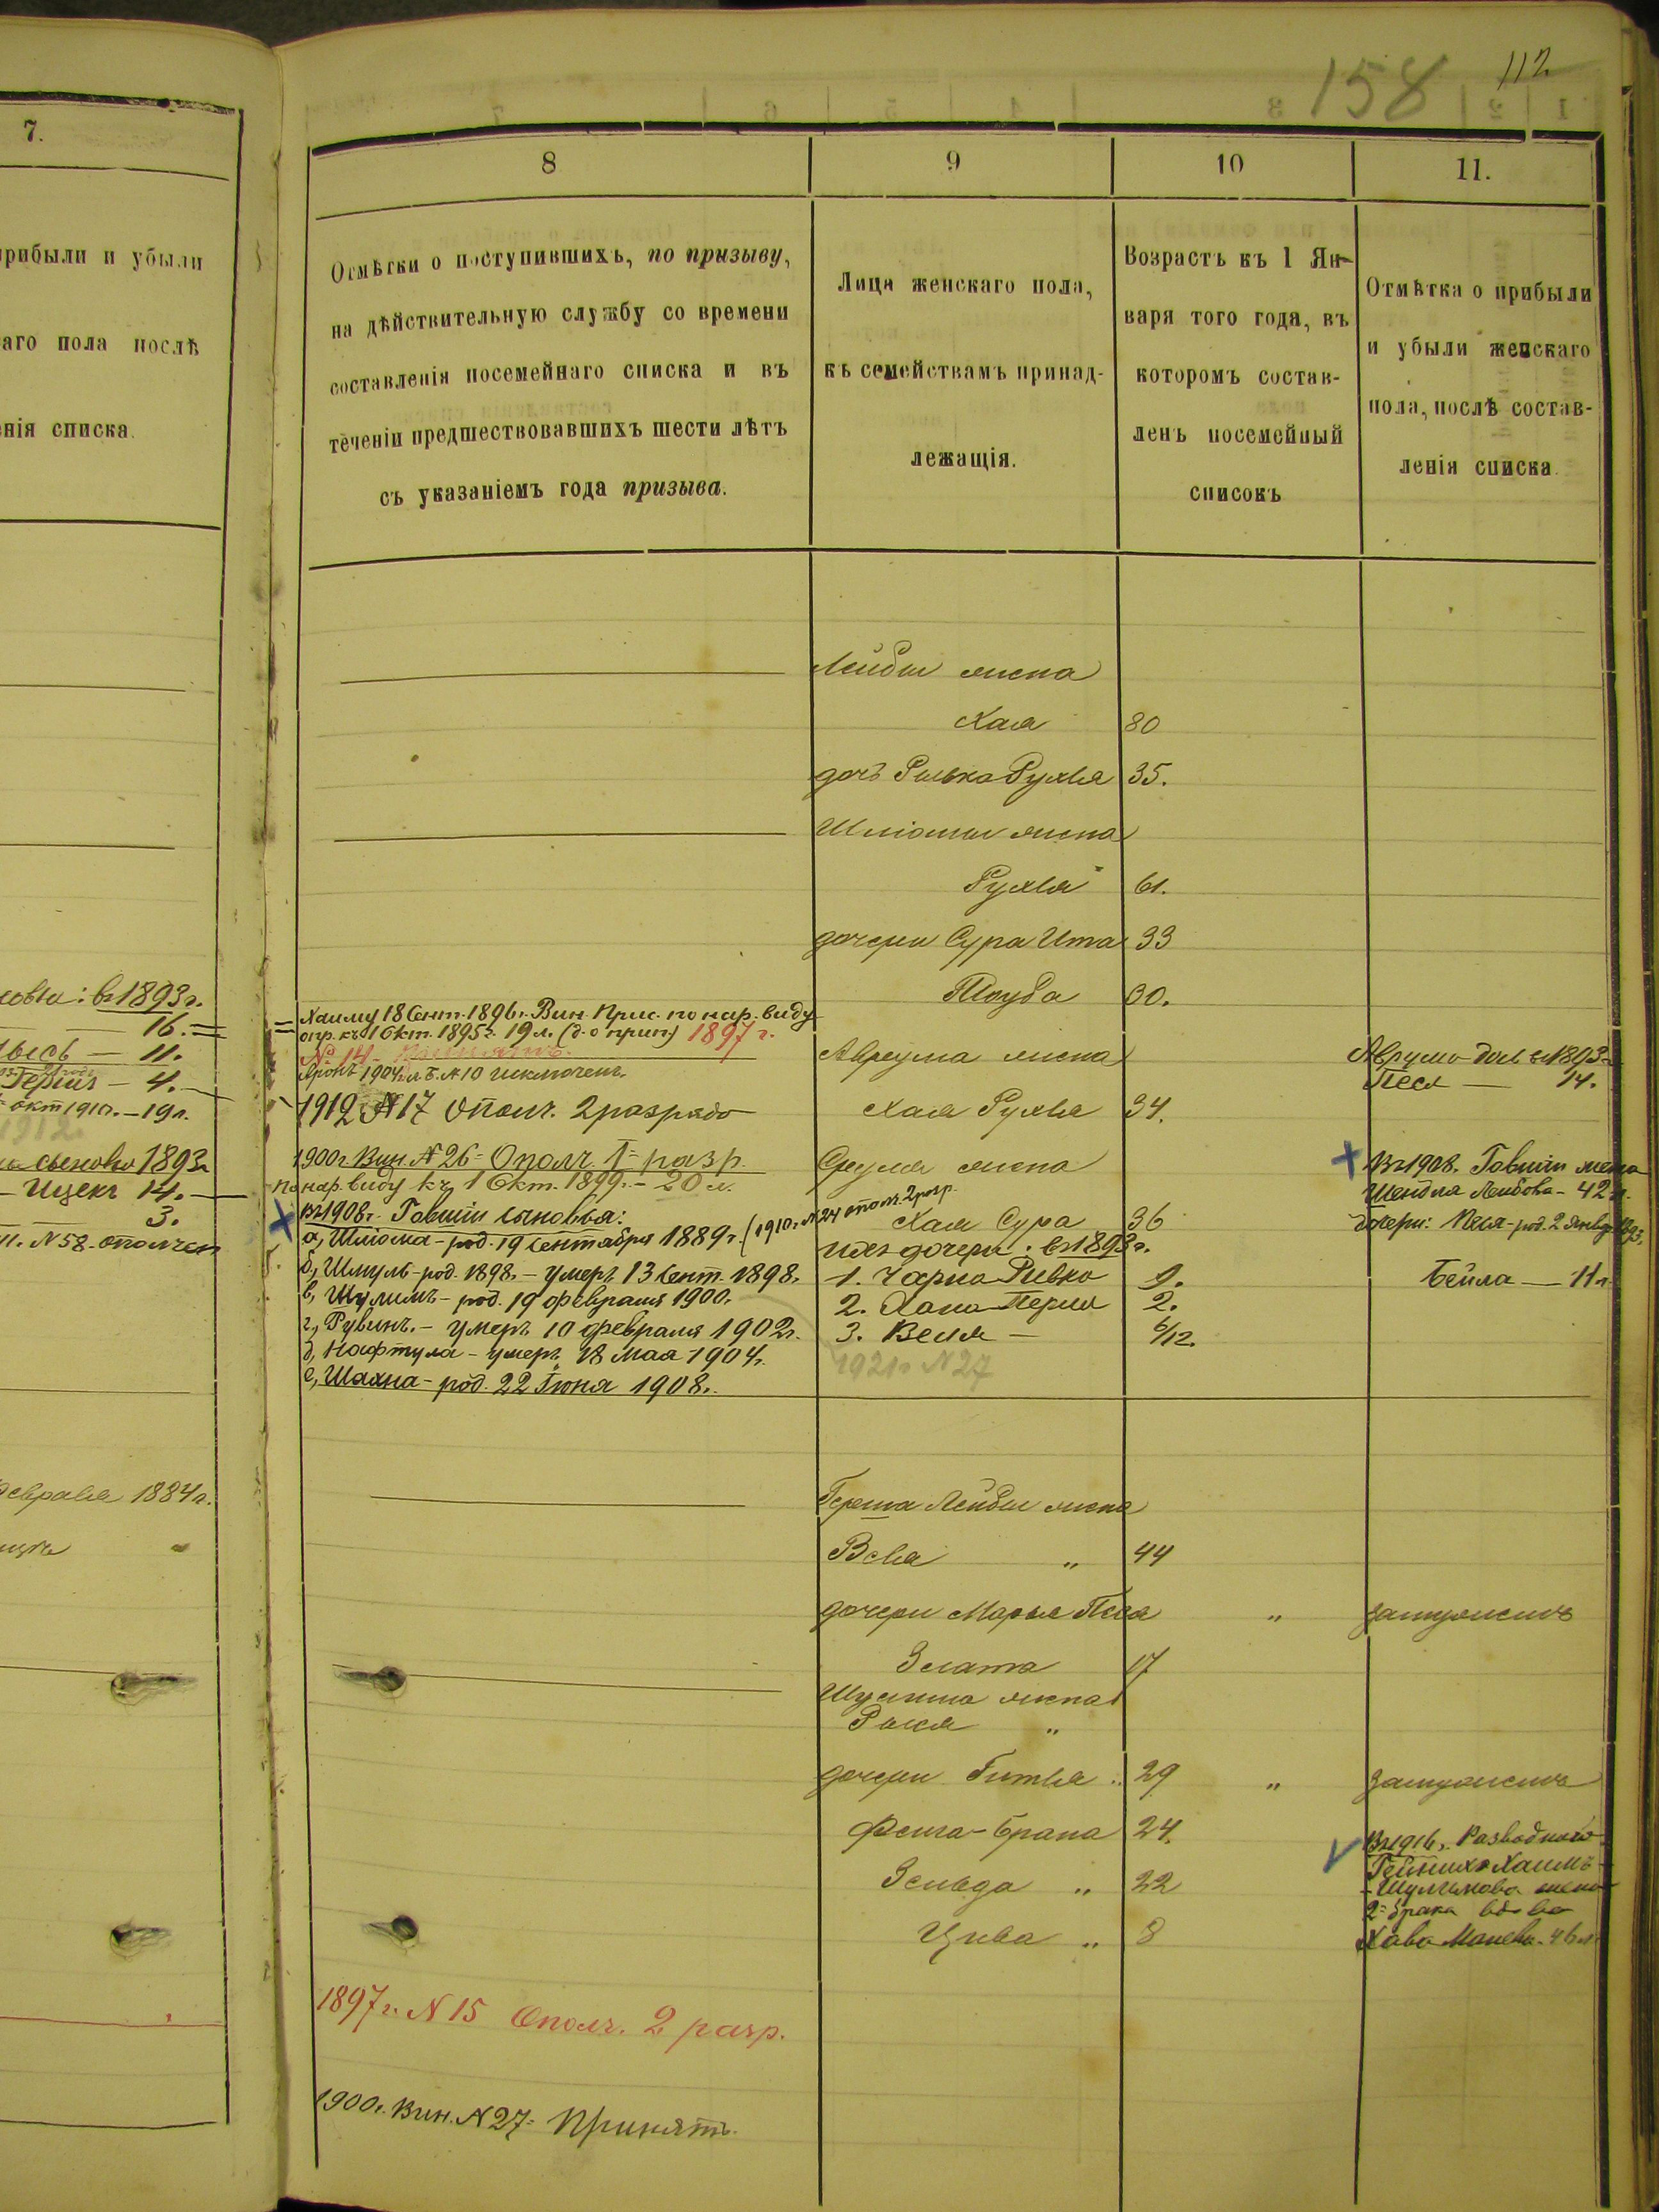 112
158
7.
прибыли и убыли
аго пола послѣ
енія списка.
8
9
10
11.
Отмѣтки о поступившихъ, по призыву,
на дѣйствительную службу со времени
составленія посемейнаго списка и въ
теченіи предшествовавшихъ шести лѣтъ
съ указаніемъ года призыва.
Лица женскаго пола,
къ семействамъ принад-
лежащія.
Возрастъ къ 1 Ян-
варя того года, въ
которомъ состав-
ленъ посемейный
списокъ
Отмѣтка о прибыли
и убыли женскаго
пола, послѣ состав-
ленія списка.
Лейбы жена
Хая 80
дочь Ривка Рухля 35.
Шліомы жена
Рухля 61.
дочери Сура Ита 33
Тауба 30.
1893 г.
16.
11.
Гершъ – 4.
окт 1910. – 19 л.
1912.
сыновья 1893
Ицекъ 14.
3.
N 58. ополчен
Хаиму 18 Сент. 1896 г. Вин. Прис. по нар. виду
опр. къ 1 Окт. 1895 г. 19 л. (д. о прип.) 1897 г.
№ 14.
Аронъ 1904 г. N 10 исключенъ.
1912 N 17 Ополч. 2 разряда
1900 г. Вин. N 26 = Ополч. 1 = разр.
По нар. виду къ 1 Окт. 1899 г. – 20 л.
Въ 1908 г. Говшіи сыновья:
а, Шліома – род. 19 сентября 1889 г. (1910 г. N 24 ополч. 2 разр.
б, Шмуль – род. 1898. – умеръ 13 Сент. 1898.
в, Шулимъ – род. 19 февраля 1900.
г, Рувинъ. – умеръ 10 февраля 1902 г.
д, Нафтула – умеръ 18 мая 1904 г.
е, Шахна – род. 22 Іюня 1908 г.
Аврума жена
Хая Рухля 34.
Сруля жена
Хая Сура 36
ихъ дочери: въ 1893 г.
1. Чарна Ривка 9.
2. Хана Перля 2.
3. Веля – 6/12.
1921 г. N 27
Аврумо дочь въ 1893 г.
Песя — 14.
Въ 1908. Говшіи жена
Шендля Лейбова – 42 л.
дочери: Песя – род. 2 Января 1893.
Бейла — 11 л.
февраля 1884 г.
Герша Лейбы жена
Вея „ 44
дочери Марья Песя „ замужемъ
Злата 17
Шулима жена
Рыся „
дочери Гитля „ 29 „ замужемъ
Фейга-Брана 24.
Зельда „ 22
Цива „ 8
Въ 1916 г. Разводнаго
Хаимъ
– Шулимова жена
2 = брака вдова
Хава Манева – 46 л.
1897 г. N 15 Ополч. 2 разр.
1900 г. Вин. N 27 = Принятъ.